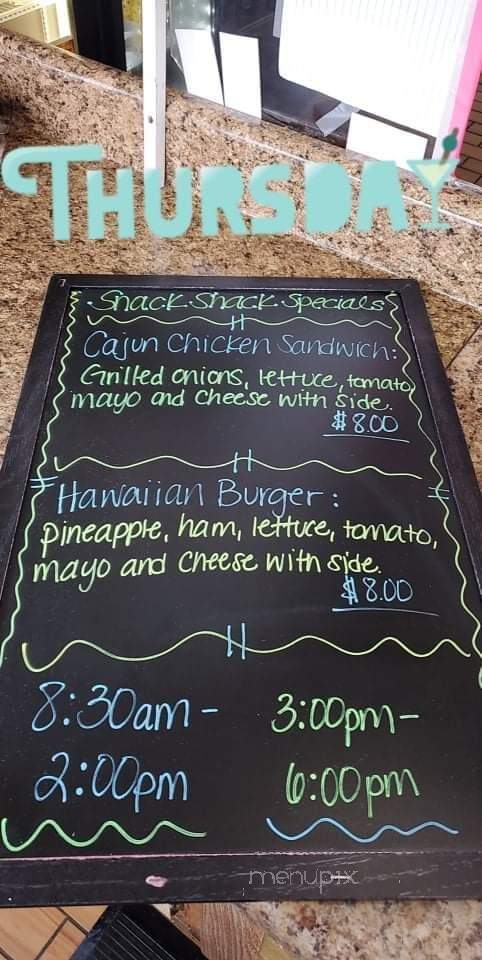 THURSDAY
Snack Shack Specials
Cajun Chicken Sandwich:
Grilled onions, lettuce, tomato,
mayo and cheese with side.
$8.00
Hawaiian Burger:
Pineapple, ham, lettuce, tomato,
mayo and cheese with side.
$8.00
8:30am-
2:00pm
3:00pm-
6:00pm
menupix